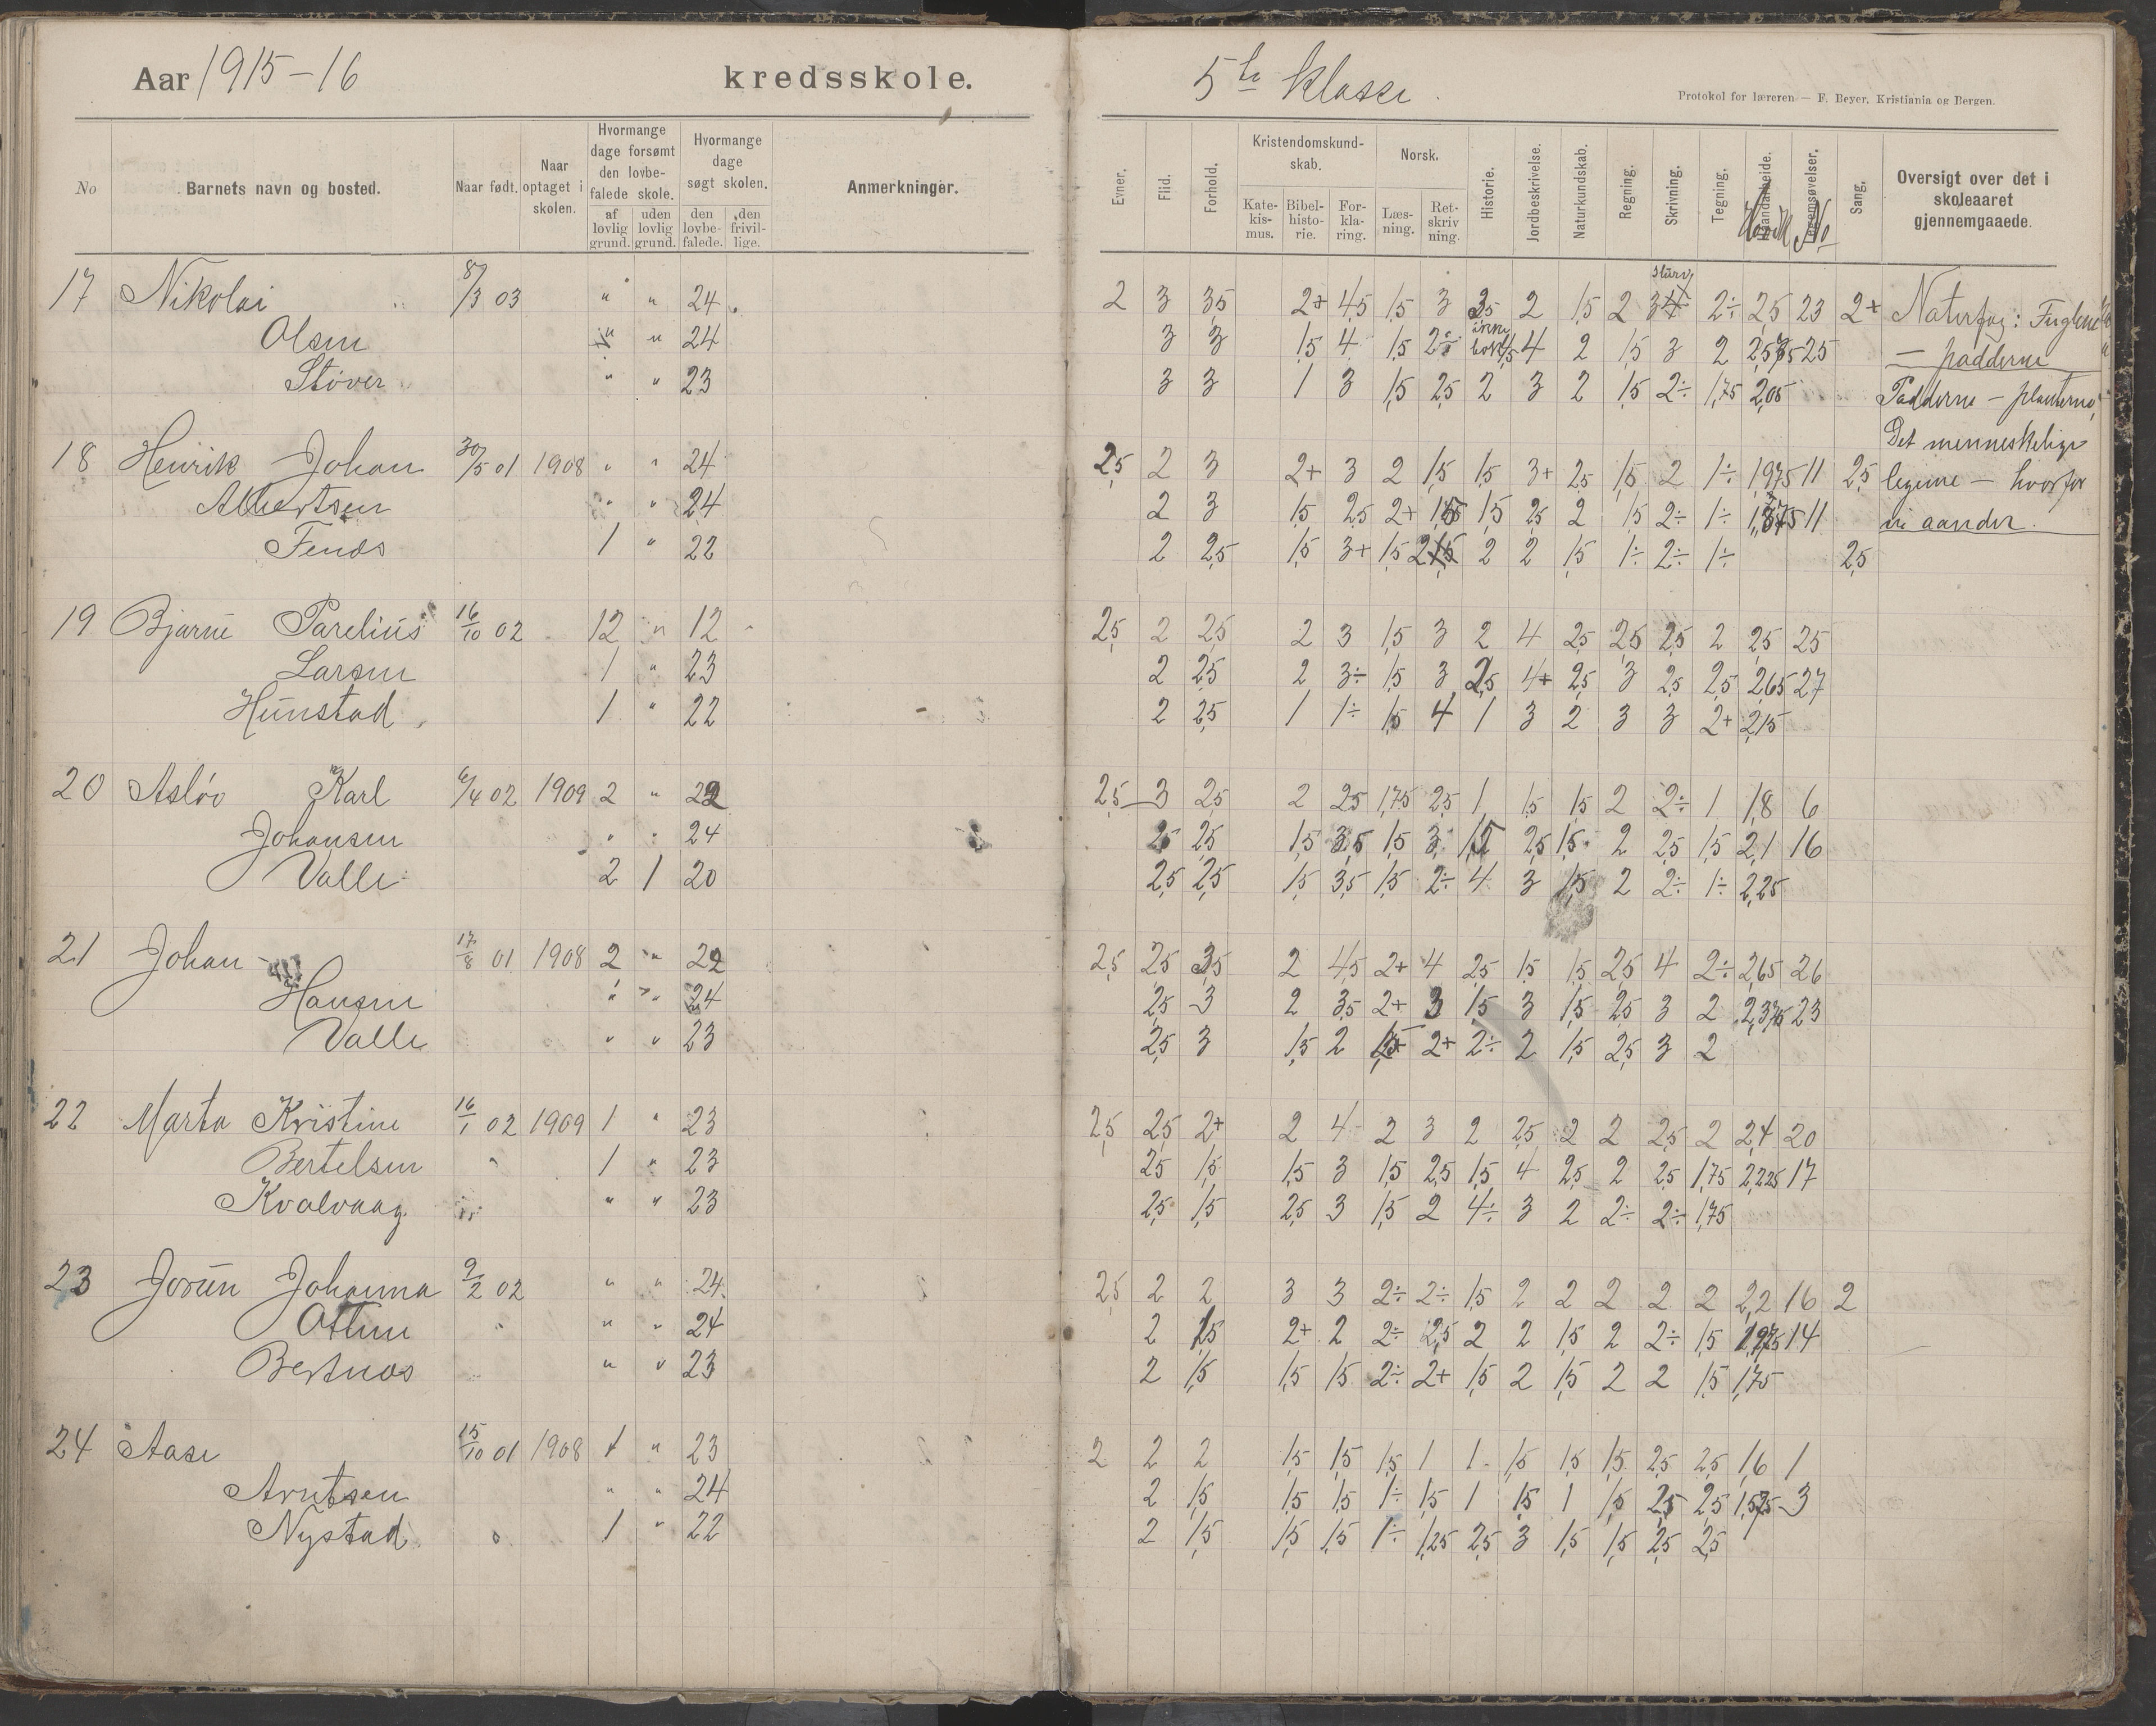 Aar 1915-16 kredsskole. 5te klasse
Protokol for læreren — F. Beyer, Kristiania og Bergen.
No Barnets navn og bosted. Naar født. Naar optaget i skolen. Hvormange dage forsømt den lovbefalede skole. af lovlig grund. uden lovlig grund. Hvormange dage søgt skolen. den lovbefalede. den frivillige. Anmerkninger.
Evner. Flid. Forhold. Kristendomskundskab. Katekismus. Bibelhistorie. Forklaring. Norsk. Læsning. Retskrivning. Historie. Jordbeskrivelse. Naturkundskab. Regning. Skrivning. Tegning. Haandarbeide. Legemsøvelser. No Sang. Oversigt over det i skoleaaret gjennemgaaede.
17 Nikolai 8/3 03 " " 24 2 3 3,5 2+ 4,5 1,5 3 2,5 2 1,5 2 3 2÷ 2,5 23 2+ Naturfag: Fuglene
Olsen " " 24 3 3 1,5 4 1,5 2÷ 4 2 1,5 3 2 25 — padderne
Støver " " 23 3 3 1 3 1,5 2,5 2 3 2 1,5 2÷ 1,75 2,05 Padderne — planterne,
Det menneskelige
18 Henrik Johan 30/5 01 1908 " " 24 2,5 2 3 2+ 3 2 1,5 1,5 3+ 2,5 1,5 2 1÷ 1,975 11 2,5 legeme — hvorfor
Albertsen " " 24 2 3 1,5 2,5 2+ 1,5 2,5 2 1,5 2÷ 1÷ 11 vi aander.
Fenes 1 " 22 2 2,5 1,5 3+ 1,5 2 2 2 1,5 1÷ 2÷ 1÷ 2,5
19 Bjarne Parelius 16/10 02 12 " 12 2,5 2 2,5 2 3 1,5 3 2 4 2,5 2,5 2,5 2 2,5 25
Larsen 1 " 23 2 2,5 2 3÷ 1,5 3 2,5 4+ 2,5 3 2,5 2,5 2,65 27
Hunstad 1 " 22 2 2,5 1 1÷ 1,5 4 1 3 2 3 3 2+ 2,15
20 Asløv Karl 6/4 02 1909 2 " 22 2,5 3 2,5 2 2,5 1,75 2,5 1 1,5 1,5 2 2÷ 1 1,8 6
Johansen " " 24 2,5 2,5 1,5 3,5 1,5 3 2,5 1,5 2 2,5 1,5 2,1 16
Valle 2 1 20 2,5 2,5 1,5 3,5 1,5 2÷ 4 3 1,5 2 2÷ 1÷ 2,25
21 Johan 17/8 01 1908 2 " 22 2,5 2,5 3,5 2 4,5 2+ 4 2,5 1,5 1,5 2,5 4 2÷ 2,65 26
Hansen " " 24 2,5 3 2 3,5 2+ 3 1,5 3 1,5 2,5 3 2 2,375 23
Valle " " 23 2,5 3 1,5 2 2+ 2÷ 2 1,5 2,5 3 2
22 Marta Kristine 16/1 02 1909 1 " 23 2,5 2,5 2+ 2 4 2 3 2 2,5 2 2 2,5 2 2,4 20
Bertelsen 1 " 23 2,5 1,5 1,5 3 1,5 2,5 1,5 4 2,5 2 2,5 1,75 2,225 17
Kvalvaag " " 23 2,5 1,5 2,5 3 1,5 2 4÷ 3 2 2÷ 2÷ 1,75
23 Jorun Johanna 9/2 02 " " 24 2,5 2 2 3 3 2÷ 2÷ 1,5 2 2 2 2 2 2,2 16 2
Ottine " " 24 2 1,5 2+ 2 2÷ 2,5 2 2 1,5 2 2÷ 1,5 1,975 14
Bertnes " " 23 2 1,5 1,5 1,5 2÷ 2+ 1,5 2 1,5 2 2 1,5 1,75
24 Aase 15/10 01 1908 1 " 23 2 2 2 1,5 1,5 1,5 1 1 1,5 1,5 1,5 2,5 2,5 1,6 1
Arntsen " " 24 2 1,5 1,5 1,5 1÷ 1,5 1 1,5 1 1,5 2,5 2,5 1,575 3
Nystad 1 " 22 2 1,5 1,5 1,5 1÷ 1,25 2,5 3 1,5 1,5 2,5 2,5